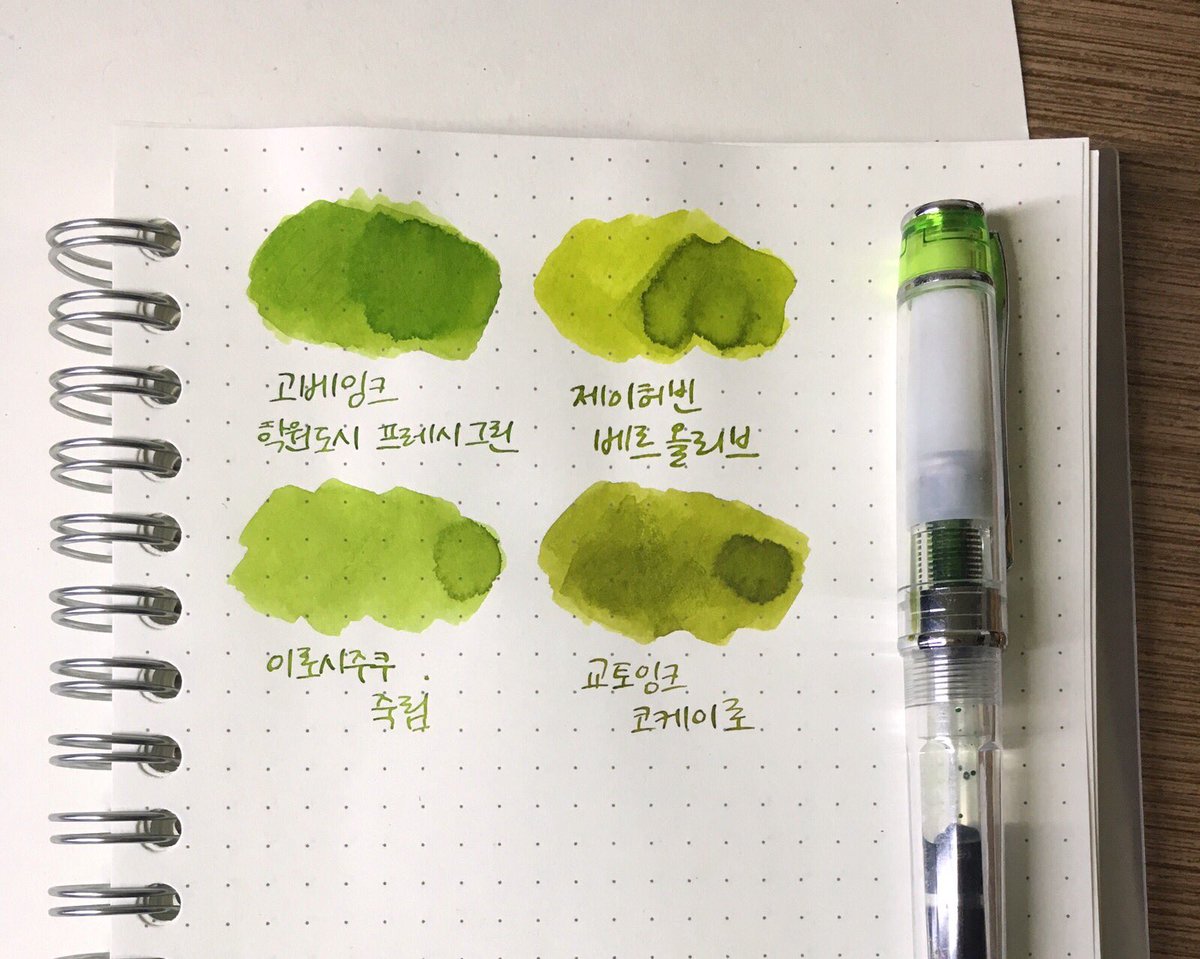 고베잉크
학원도시 프레시그린
제이허빈
베르 올리브
이로시주쿠
죽림
교토잉크
코케이로